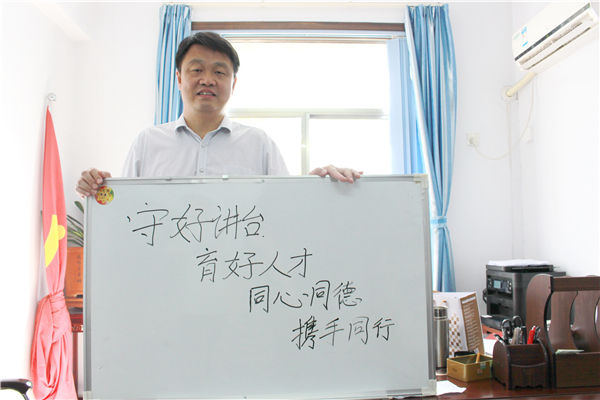 守好讲台
育好人才
同心同德
携手同行